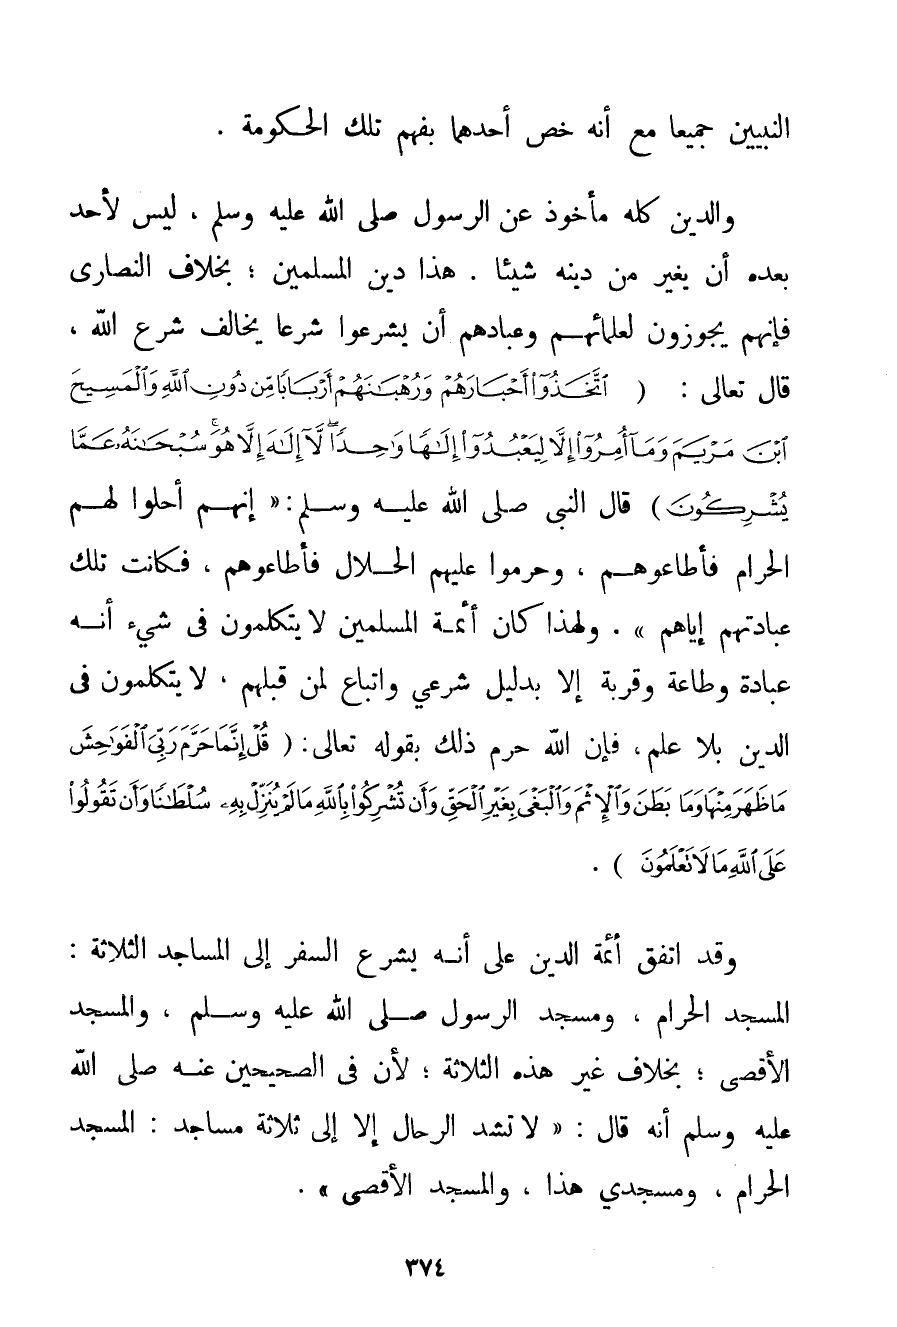 النبيين جميعا مع أنه خص أحدهما بفهم تلك الحكومة .
والدين كله مأخوذ عن الرسول صلى الله عليه وسلم ، ليس لأحد
بعده أن يغير من دينه شيئا . هذا دين المسلمين ؛ بخلاف النصارى
فإنهم يجوزون لعلمائهم وعبادهم أن يشرعوا شرعا يخالف شرع الله ،
قال تعالى : ( ٱتَّخَذُوٓا۟ أَحْبَارَهُمْ وَرُهْبَٰنَهُمْ أَرْبَابًا مِّن دُونِ ٱللَّهِ وَٱلْمَسِيحَ
ٱبْنَ مَرْيَمَ وَمَآ أُمِرُوٓا۟ إِلَّا لِيَعْبُدُوٓا۟ إِلَٰهًا وَٰحِدًا ۖ لَّآ إِلَٰهَ إِلَّا هُوَ ۚ سُبْحَٰنَهُۥ عَمَّا
يُشْرِكُونَ ) قال النبى صلى الله عليه وسلم : « إنهم أحلوا لهم
الحرام فأطاعوهم ، وحرموا عليهم الحلال فأطاعوهم ، فكانت تلك
عبادتهم إياهم » . ولهذا كان أئمة المسلمين لا يتكلمون فى شيء أنه
عبادة وطاعة وقربة إلا بدليل شرعي واتباع لمن قبلهم ، لا يتكلمون فى
الدين بلا علم ، فإن الله حرم ذلك بقوله تعالى : ( قُلْ إِنَّمَا حَرَّمَ رَبِّىَ ٱلْفَوَٰحِشَ
مَا ظَهَرَ مِنْهَا وَمَا بَطَنَ وَٱلْإِثْمَ وَٱلْبَغْىَ بِغَيْرِ ٱلْحَقِّ وَأَن تُشْرِكُوا۟ بِٱللَّهِ مَا لَمْ يُنَزِّلْ بِهِۦ سُلْطَٰنًا وَأَن تَقُولُوا۟
عَلَى ٱللَّهِ مَا لَا تَعْلَمُونَ ) .
وقد اتفق أئمة الدين على أنه يشرع السفر إلى المساجد الثلاثة :
المسجد الحرام ، ومسجد الرسول صلى الله عليه وسلم ، والمسجد
الأقصى ؛ بخلاف غير هذه الثلاثة ؛ لأن فى الصحيحين عنه صلى الله
عليه وسلم أنه قال : « لا تشد الرحال إلا إلى ثلاثة مساجد : المسجد
الحرام ، ومسجدي هذا ، والمسجد الأقصى » .
٣٧٤